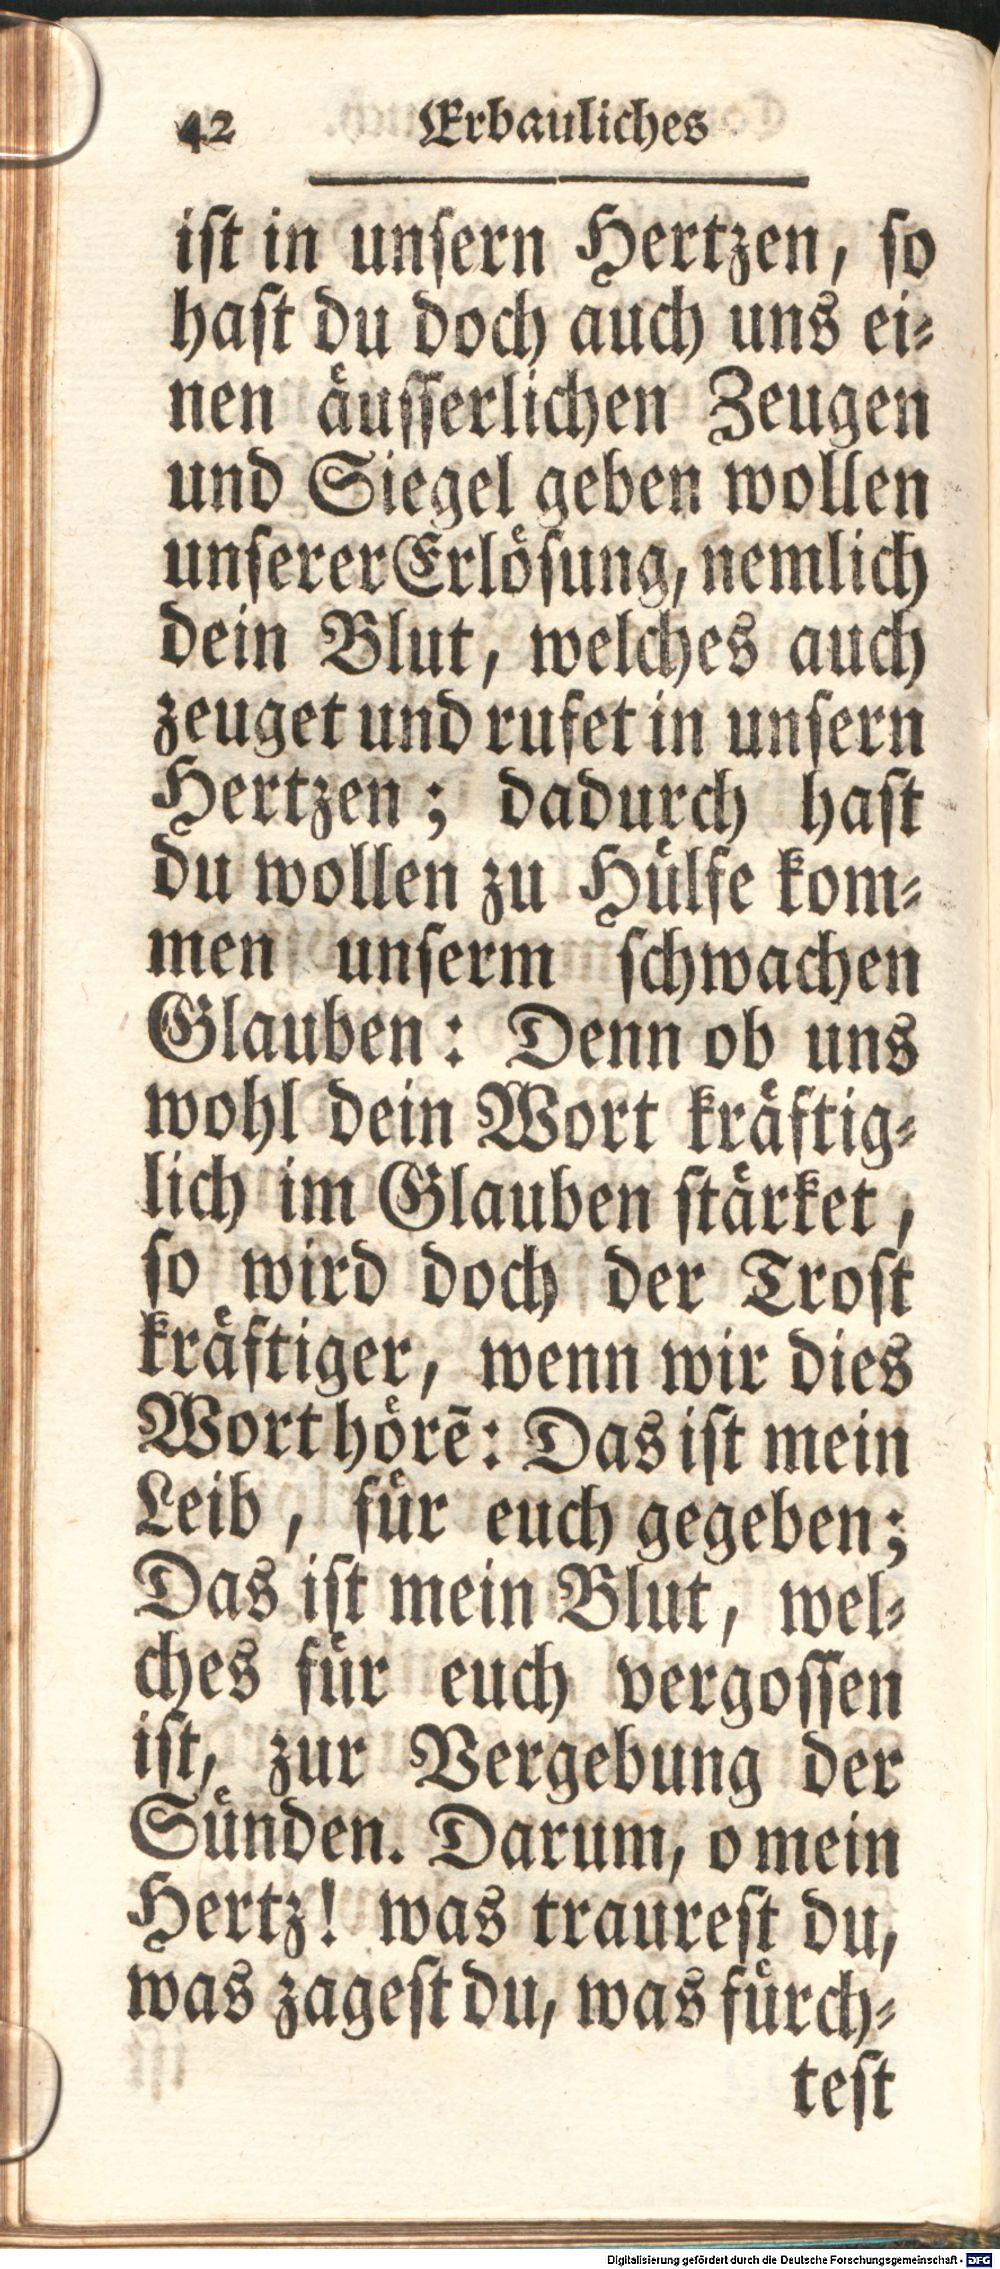 42 Erbauliches
iſt in unſern Hertzen, ſo
haſt du doch auch uns ei⸗
nen aͤuſſerlichen Zeugen
und Siegel geben wollen
unſerer Erloͤſung, nemlich
dein Blut, welches auch
zeuget und rufet in unſern
Hertzen; dadurch haſt
du wollen zu Huͤlfe kom⸗
men unſerm ſchwachen
Glauben: Denn ob uns
wohl dein Wort kraͤftig⸗
lich im Glauben ſtaͤrket,
ſo wird doch der Troſt
kraͤftiger, wenn wir dies
Wort hoͤrē: Das iſt mein
Leib, fuͤr euch gegeben;
Das iſt mein Blut, wel⸗
ches fuͤr euch vergoſſen
iſt, zur Vergebung der
Suͤnden. Darum, o mein
Hertz! was traureſt du,
was zageſt du, was fuͤrch⸗
teſt
Digitalisierung gefördert durch die Deutsche Forschungsgemeinschaft - DFG